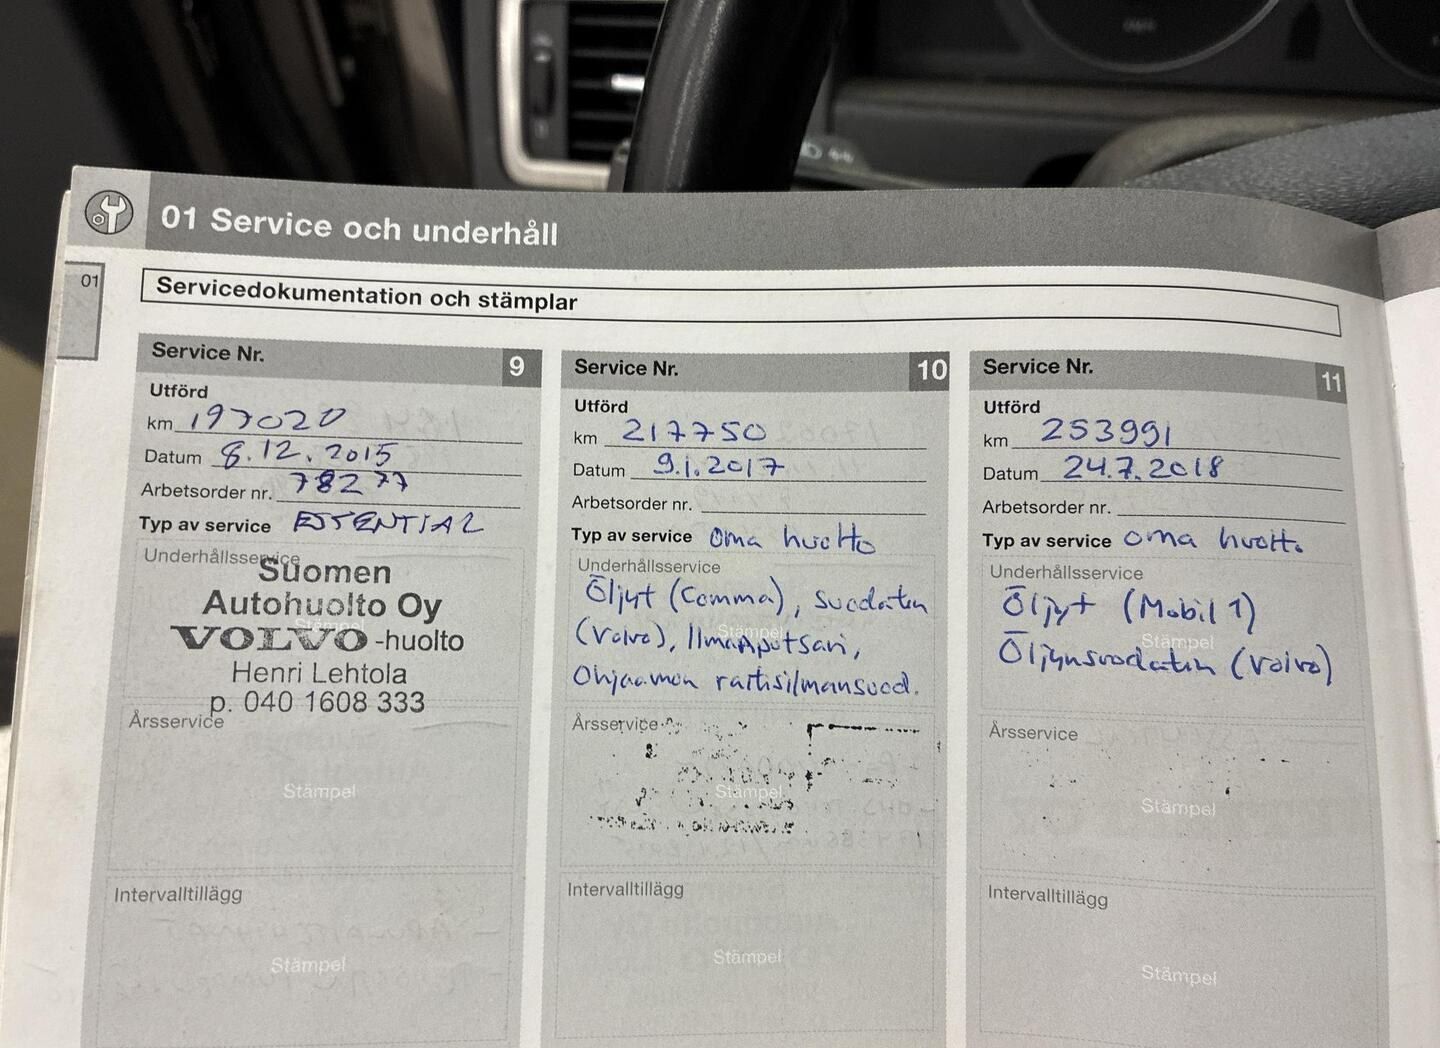 01 Service och underhåll
01
Servicedokumentation och stämplar
Service Nr. 9
Utförd
km 197020
Datum 8.12.2015
Arbetsorder nr. 78277
Typ av service ESSENTIAL
Underhållsservice
Stämpel
Suomen
Autohuolto Oy
VOLVO-huolto
Henri Lehtola
p. 040 1608 333
Årsservice
Stämpel
Intervalltillägg
Stämpel
Service Nr. 10
Utförd
km 217750
Datum 9.1.2017
Arbetsorder nr.
Typ av service oma huolto
Underhållsservice
Öljyt (Comma), suodatin
Stämpel
(Volvo), Ilmanputsari,
Ohjaamon raitisilmansuod.
Årsservice
Stämpel
Intervalltillägg
Stämpel
Service Nr. 11
Utförd
km 253991
Datum 24.7.2018
Arbetsorder nr.
Typ av service oma huolto
Underhållsservice
Öljyt (Mobil 1)
Stämpel
Öljynsuodatin (Volvo)
Årsservice
Stämpel
Intervalltillägg
Stämpel